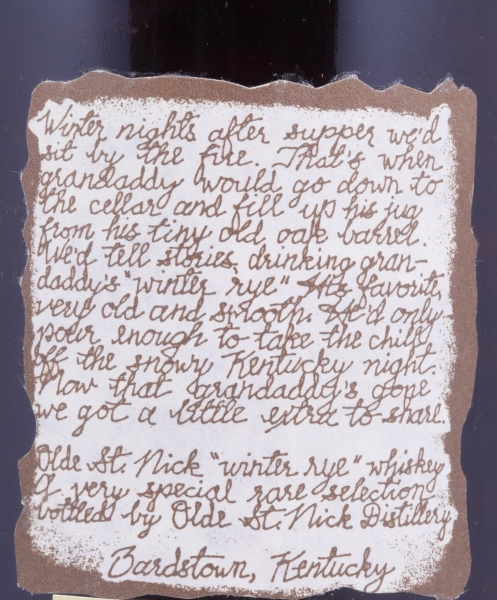 Winter nights after supper we'd
sit by the fire. That's when
grandaddy would go down to
the cellar and fill up his jug
from his tiny old oak barrel.
We'd tell stories, drinking gran-
daddy's "winter rye" His favorite,
very old and smooth. He'd only
pour enough to take the chill
off the snowy Kentucky night.
Now that grandaddy's gone
we got a little extra to share.
Olde St. Nick "winter rye" whiskey
A very special rare selection
bottled by Olde St. Nick Distillery
Bardstown, Kentucky